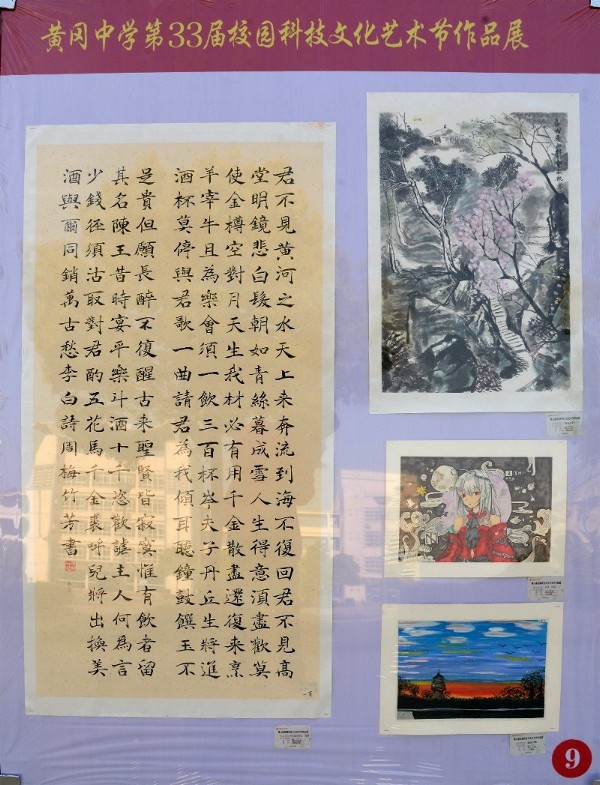 黄冈中学第33届校园科技文化艺术节作品展
君不見黃河之水天上来奔流到海不復回君不見高
堂明鏡悲白髮朝如青絲暮成雪人生得意須盡歡莫
使金樽空對月天生我材必有用千金散盡還復来烹
羊宰牛且為樂會須一飲三百杯岑夫子丹丘生將進
酒杯莫停與君歌一曲請君為我傾耳聽鐘鼓饌玉不
是貴但願長醉不復醒古来聖賢皆寂寞惟有飲者留
其名陳王昔時宴平樂斗酒十千恣歡謔主人何為言
少錢徑須沽取對君酌五花馬千金裘呼兒將出換美
酒與爾同銷萬古愁李白詩周梅竹芳書
9